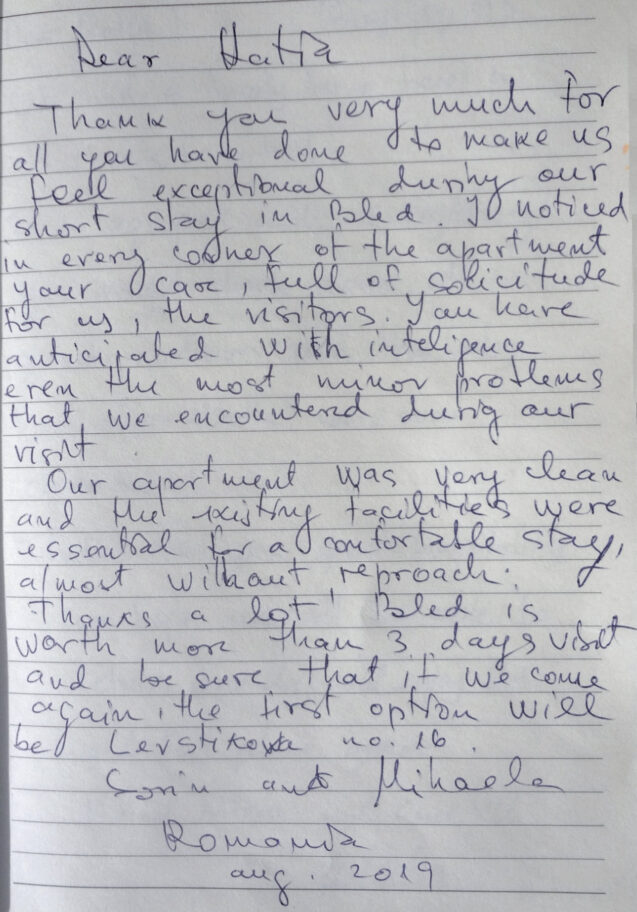 Dear Katia
Thank you very much for
all you have done to make us
feel exceptional during our
short stay in Bled. I noticed
in every corner of the apartment
your care, full of solicitude
for us, the visitors. You have
anticipated with inteligence
even the most minor problems
that we encountered during our
visit
Our apartment was very clean
and the existing facilities were
essential for a comfortable stay,
almost without reproach.
Thanks a lot! Bled is
worth more than 3 days visit
and be sure that if we come
again, the first option will
be Levstikova no. 16.
Sorin and Mihaela
Romania
aug. 2019